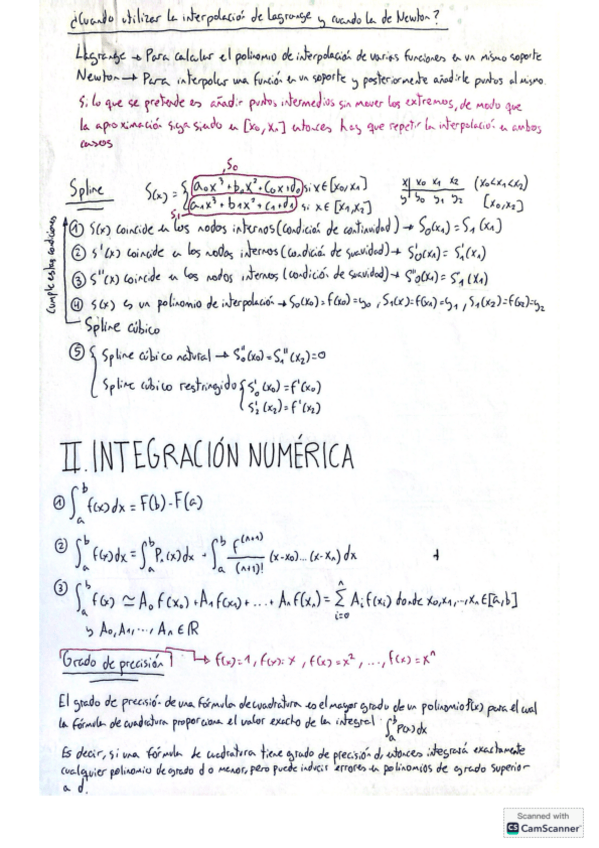 ¿Cuando utilizar la interpolación de Lagrange y cuando la de Newton?
Lagrange → Para calcular el polinomio de interpolación de varias funciones en un mismo soporte
Newton → Para interpolar una función en un soporte y posteriormente añadirle puntos al mismo.
Si lo que se pretende es añadir puntos intermedios sin mover los extremos, de modo que
la aproximación siga siendo en [x₀,xₙ] entonces hay que repetir la interpolación en ambos
casos
Spline S(x) = { a₀x³+b₀x²+c₀x+d₀ si x∈[x₀,x₁] S₀ x| x₀ x₁ x₂ (x₀<x₁<x₂)
S₁ a₁x³+b₁x²+c₁+d₁ si x∈[x₁,x₂] y| y₀ y₁ y₂ [x₀,x₂]
Cumple estas condiciones
① S(x) coincide en los nodos internos (condición de continuidad) → S₀(x₁) = S₁(x₁)
② S'(x) coincide en los nodos internos (condición de suavidad) → S'₀(x₁) = S'₁(x₁)
③ S''(x) coincide en los nodos internos (condición de suavidad) → S''₀(x₁) = S''₁(x₁)
④ S(x) es un polinomio de interpolación → S₀(x₀)=f(x₀)=y₀, S₁(x₁)=f(x₁)=y₁, S₁(x₂)=f(x₂)=y₂
Spline cúbico
⑤ { Spline cúbico natural → S''₀(x₀)=S₁''(x₂)=0
Spline cúbico restringido { S'₀(x₀)=f'(x₀)
S'₂(x₂)=f'(x₂)
II. INTEGRACIÓN NUMÉRICA
① ∫ₐᵇ f(x)dx = F(b)-F(a)
② ∫ₐᵇ f(x)dx = ∫ₐᵇ Pₙ(x)dx + ∫ₐᵇ f⁽ⁿ⁺¹⁾/(n+1)! (x-x₀)...(x-xₙ)dx
③ ∫ₐᵇ f(x) ≃ A₀f(x₀)+A₁f(x₁)+...+Aₙf(xₙ) = ∑ⁿᵢ₌₀ Aᵢf(xᵢ) donde x₀,x₁,...,xₙ∈[a,b]
y A₀,A₁,...,Aₙ∈ℝ
Grado de precisión → f(x)=1, f(x)=x, f(x)=x², ..., f(x)=xⁿ
El grado de precisión de una fórmula de cuadratura es el mayor grado de un polinomio f(x) para el cual
la fórmula de cuadratura proporciona el valor exacto de la integral ∫ₐᵇ P(x)dx
Es decir, si una fórmula de cuadratura tiene grado de precisión d, entonces integrará exactamente
cualquier polinomio de grado d o menor, pero puede inducir errores en polinomios de grado superior
a d.
Scanned with
CS CamScanner